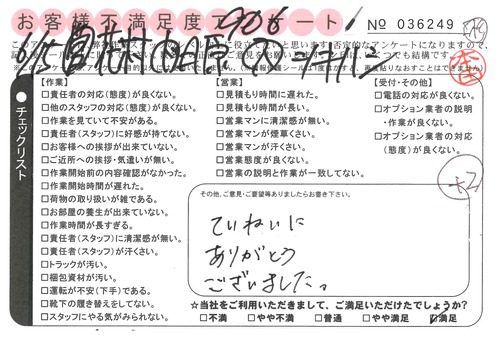 お客様不満足度アンケート!
906
No 036249
チェックリスト
【作業】
□責任者の対応(態度)が良くない。
□他のスタッフの対応(態度)が良くない。
□作業を見ていて不安がある。
□責任者(スタッフ)に好感が持てない。
□お客様への挨拶が出来ていない。
□ご近所への挨拶・気遣いが無い。
□作業開始前の内容確認がなかった。
□作業開始時間が遅れた。
□荷物の取り扱いが雑である。
□お部屋の養生が出来ていない。
□作業時間が長すぎる。
□責任者(スタッフ)に清潔感が無い。
□責任者(スタッフ)が汗くさい。
□トラックが汚い。
□梱包資材が汚い。
□運転が不安(下手)である。
□靴下の履き替えをしてない。
□スタッフにやる気がみられない。
【営業】
□見積もり時間に遅れた。
□見積もり時間が長い。
□営業マンに清潔感が無い。
□営業マンが煙草くさい。
□営業マンが汗くさい。
□営業態度が良くない。
□営業の説明と作業が一致してない。
【受付・その他】
□電話の対応が良くない。
□オプション業者の説明
・作業が良くない。
□オプション業者の対応
(態度)が良くない。
その他、ご意見・ご要望等ありましたらお書き下さい。
ていねいに
ありがとう
ございました。
☆当社をご利用いただきまして、ご満足いただけたでしょうか?
□不満 □やや不満 □普通 □やや満足 ☑満足